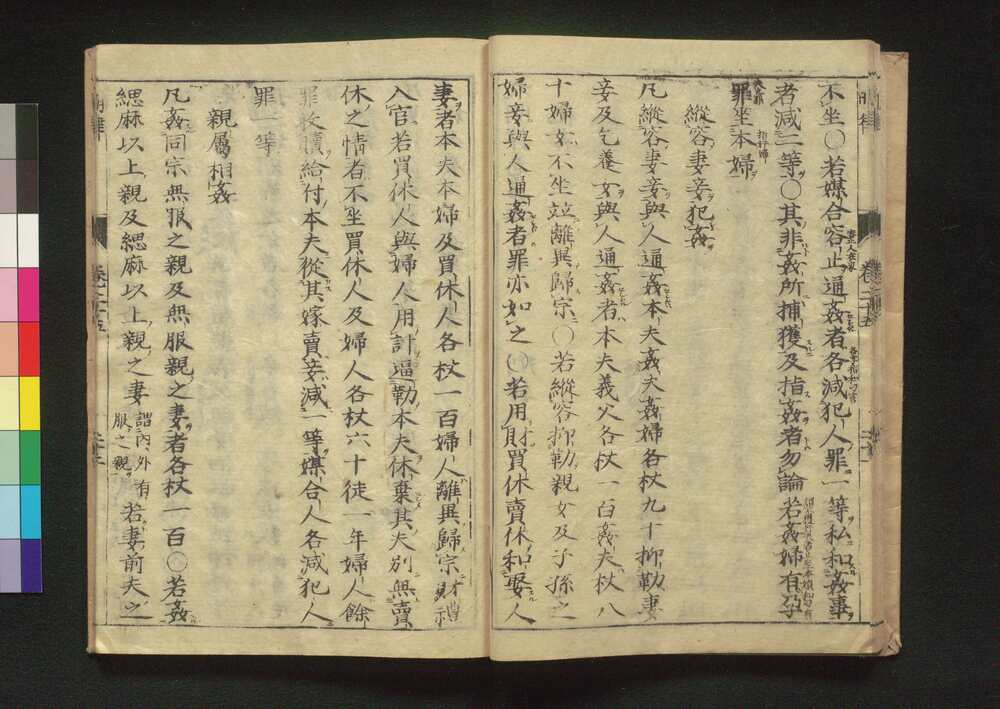 不坐○若媒合容止通姦者各減犯人罪一等私和姦事
者減二等○其非姦所捕獲及指姦者勿論若姦婦有孕
罪坐本婦
縱容妻妾犯姦
凡縱容妻妾與人通姦本夫姦夫姦婦各杖九十抑勒妻
妾及乞養女與人通姦者本夫義父各杖一百姦夫杖八
十婦女不坐並離異歸宗○若縱容抑勒親女及子孫之
婦妾與人通姦者罪亦如之○若用財買休賣休和娶人
妻者本夫本婦及買休人各杖一百婦人離異歸宗財禮
入官若買休人與婦人用計逼勒本夫休棄其夫別無賣
休之情者不坐買休人及婦人各杖六十徒一年婦人餘
罪收贖給付本夫從其嫁賣妾減一等媒合人各減犯人
罪一等
親屬相姦
凡姦同宗無服之親及無服親之妻者各杖一百○若姦
緦麻以上親及緦麻以上親之妻謂內外有服之親若妻前夫之
明律
卷二十五